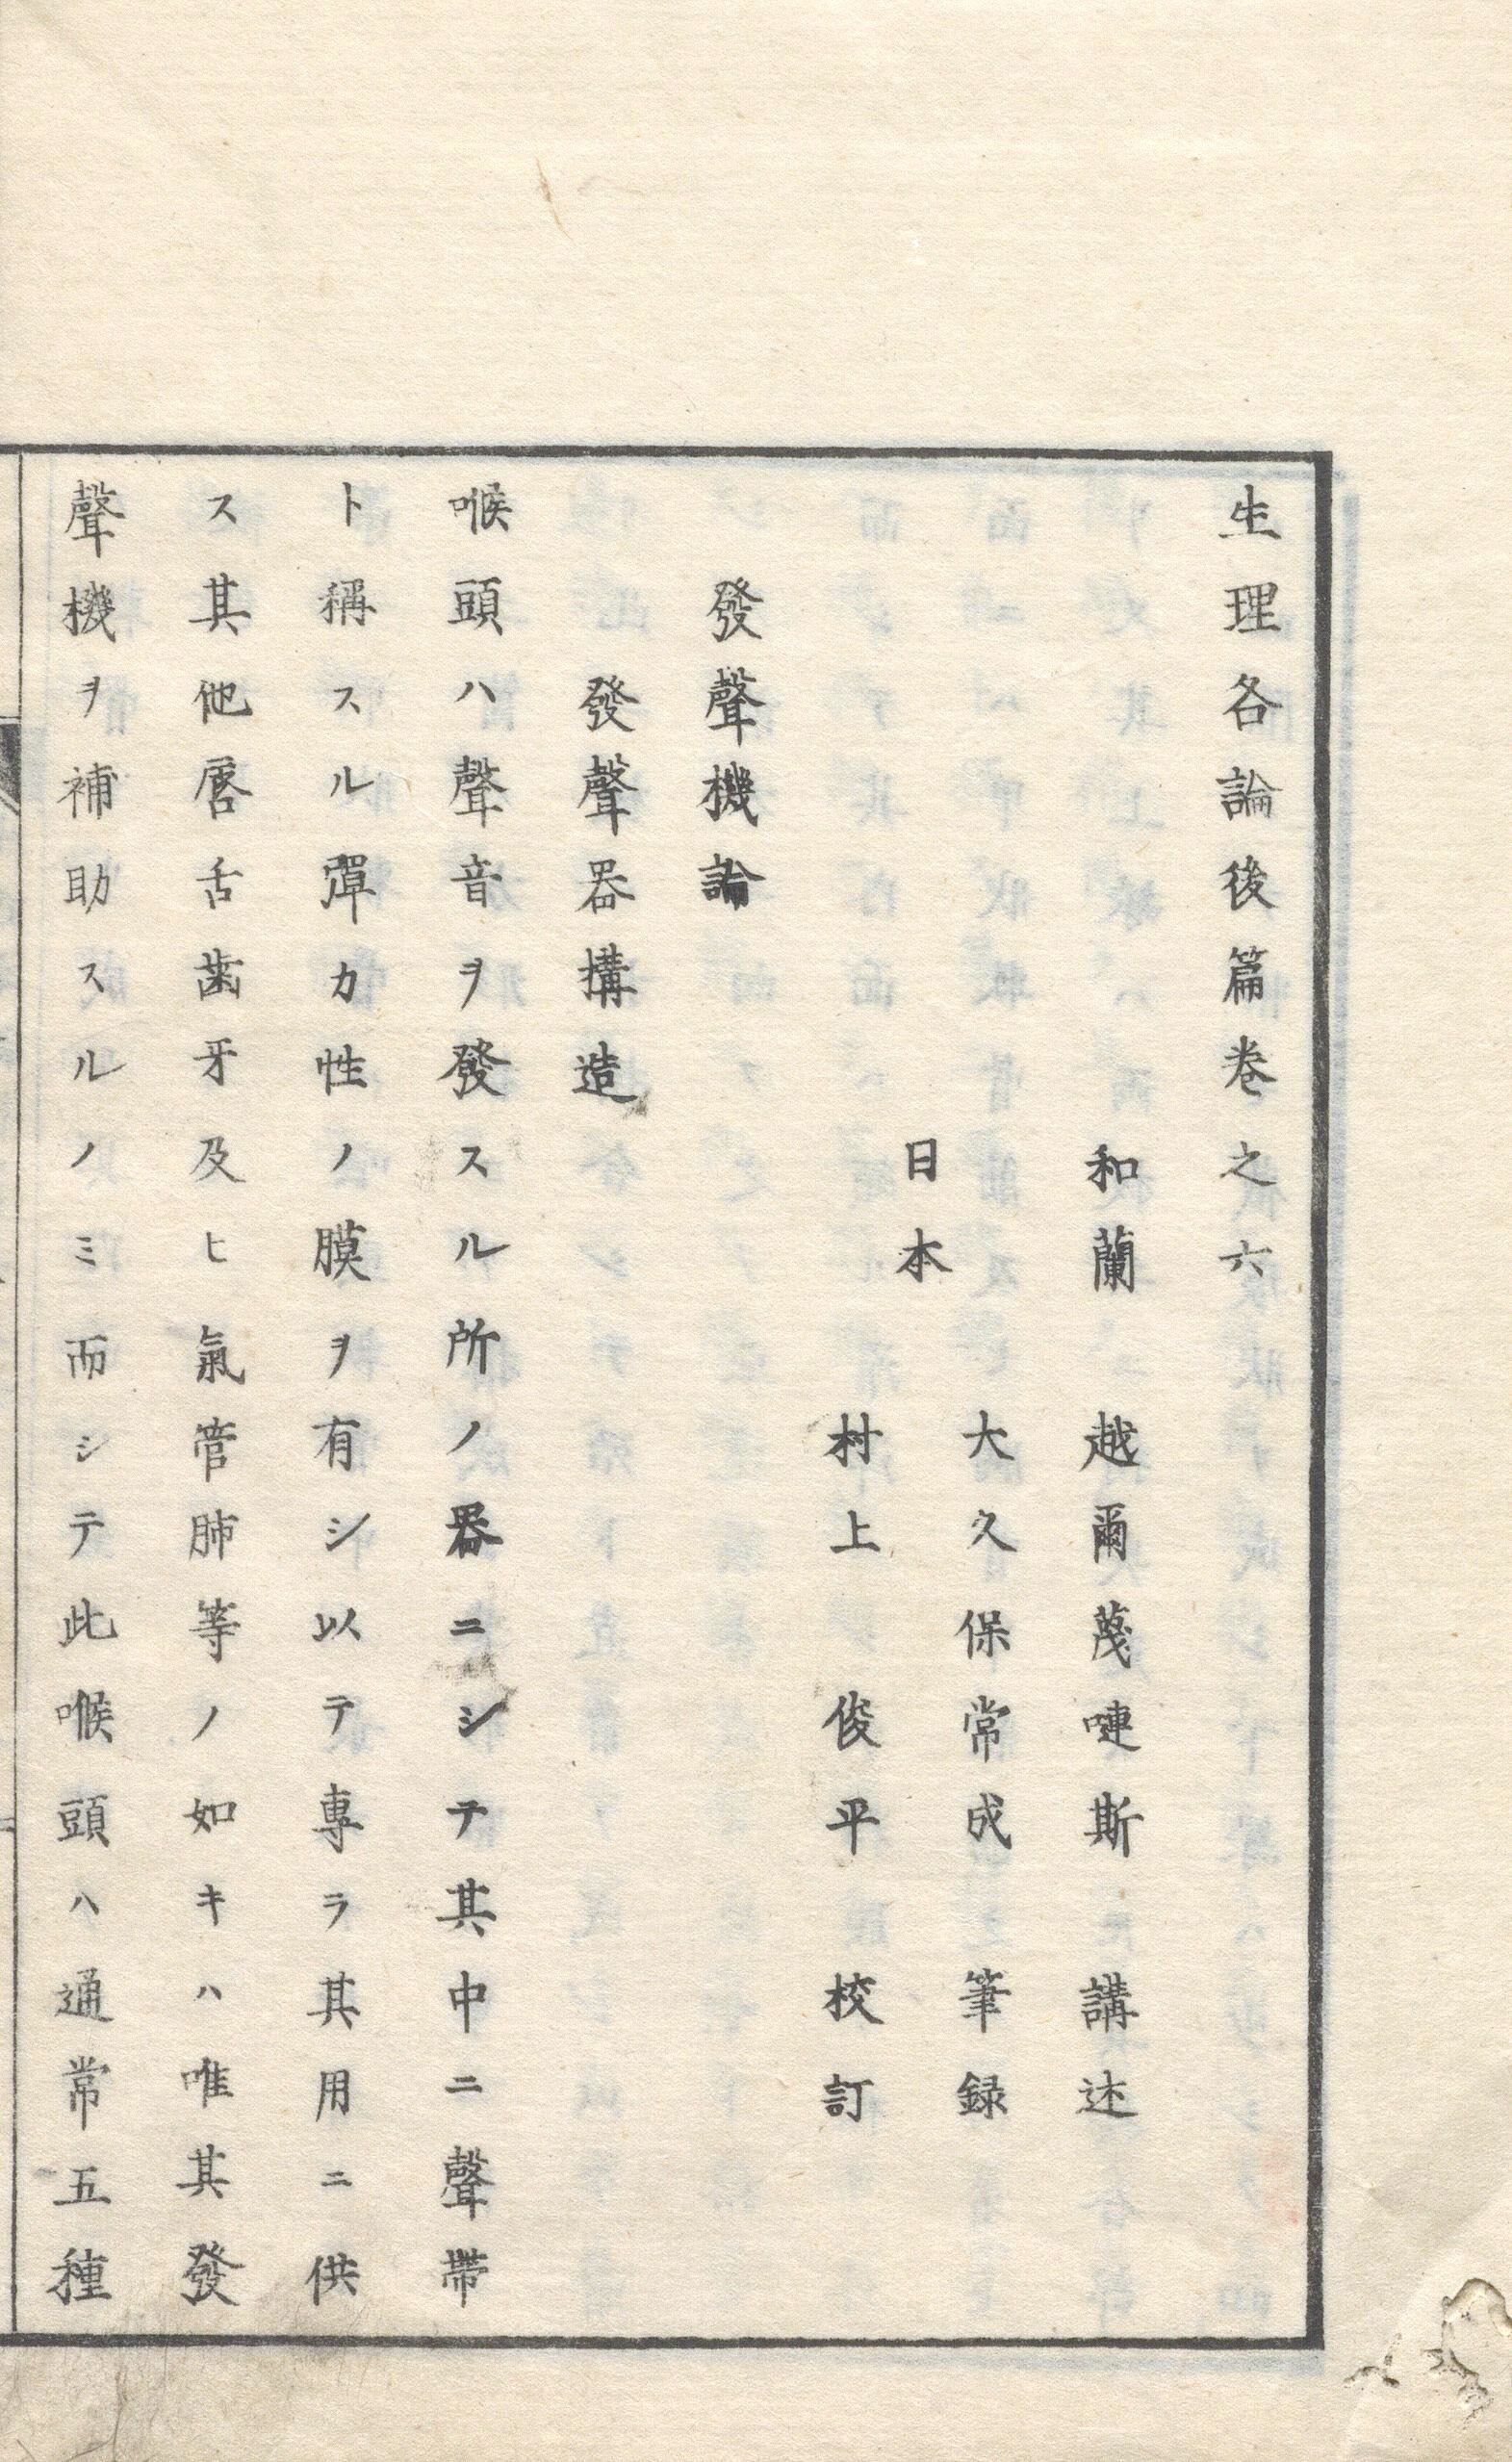 生理各論後篇卷之六
和蘭 越爾蔑嗹斯 講述
日本
大久保常成 筆録
村上 俊平 校訂
發聲機論
發聲器搆造
喉頭ハ聲音ヲ發スル所ノ器ニシテ其中ニ聲帶
ト稱スル彈力性ノ膜ヲ有シ以テ專ラ其用ニ供
ス其他唇舌齒牙及ヒ氣管肺等ノ如キハ唯其發
聲機ヲ補助スルノミ而シテ此喉頭ハ通常五種